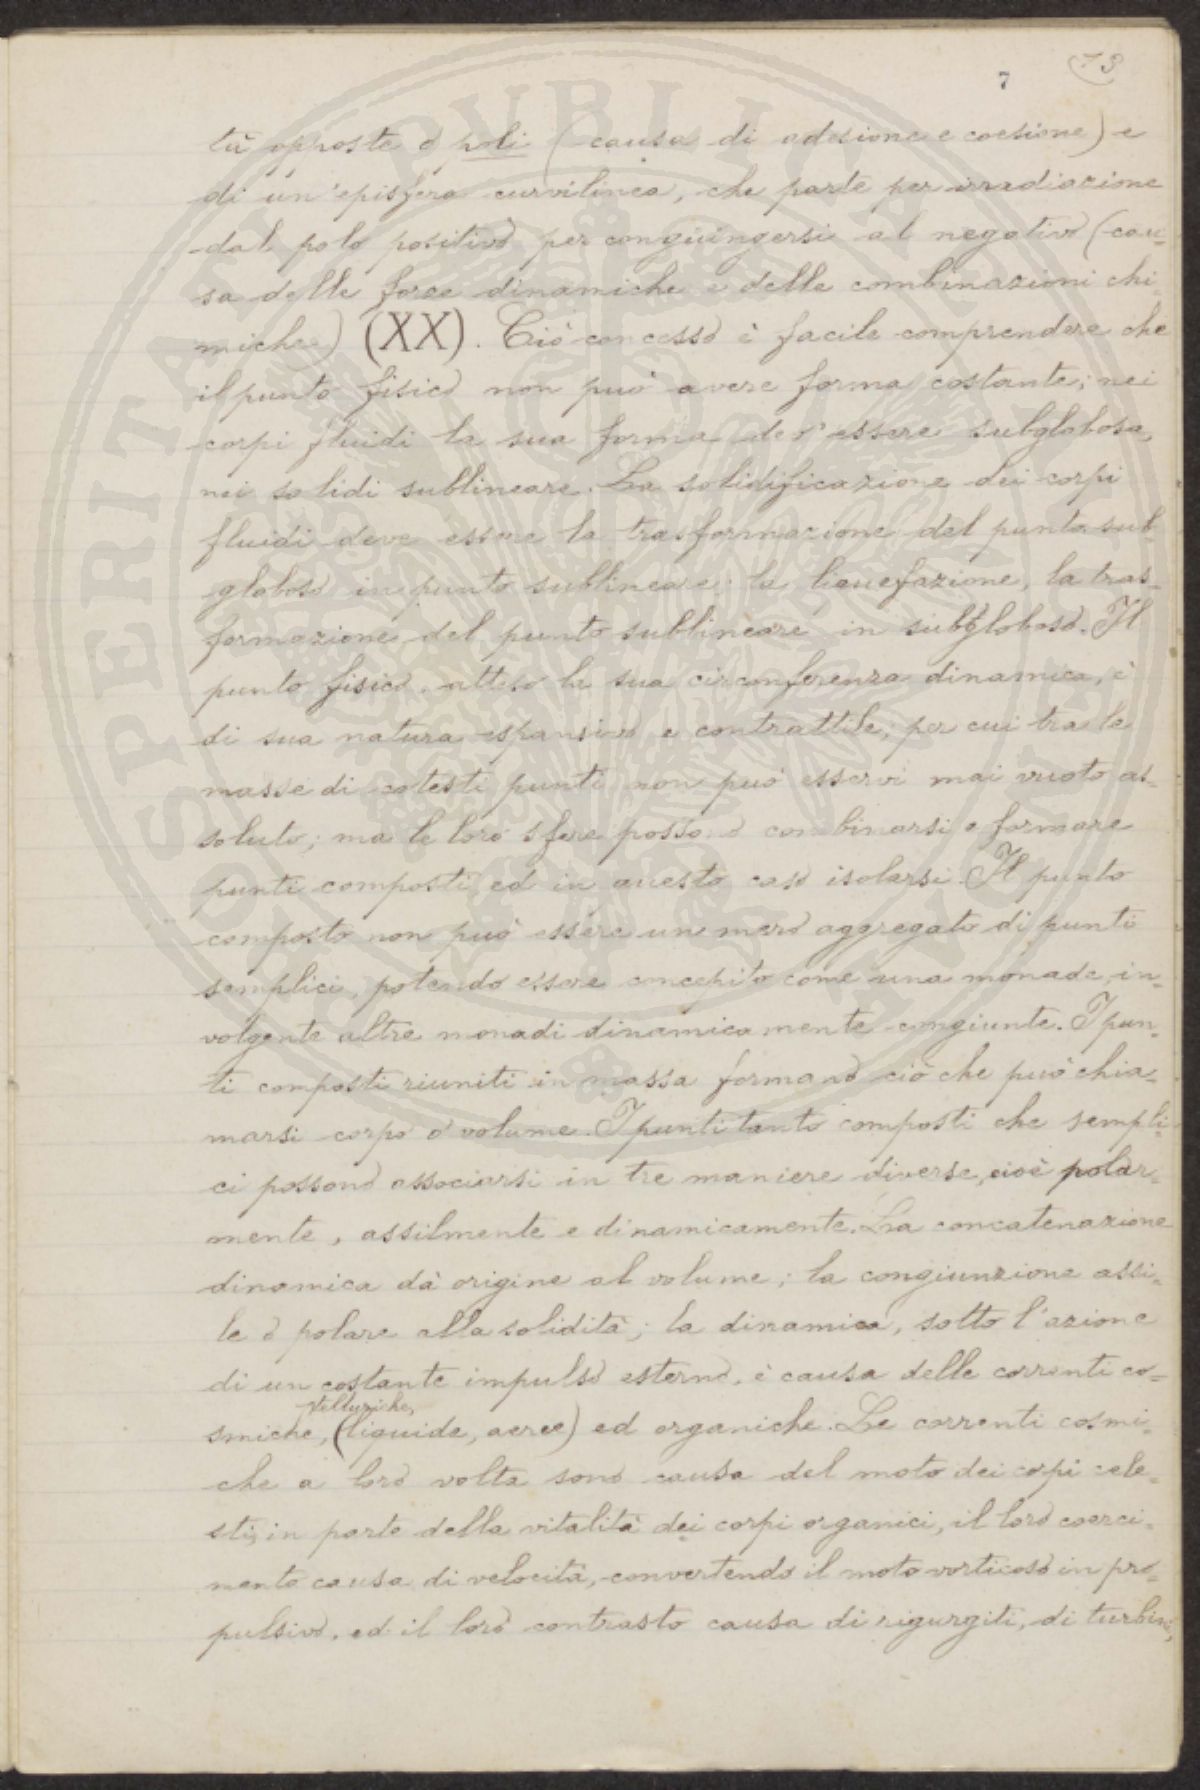 7 73
tù opposte o poli (causa di adesione e coesione) e
di un'episfera curvilinea, che parte per irradiazione
dal polo positivo per congiungersi al negativo (cau=
sa delle forze dinamiche e delle combinazioni chi=
miche) (XX). Ciò concesso è facile comprendere che
il punto fisico non può avere forma costante; nei
corpi fluidi la sua forma dev'essere subglobosa,
nei solidi sublineare. La solidificazione dei corpi
fluidi deve essere la trasformazione del punto sub=
globoso in punto sublineare; la liquefazione, la tras=
formazione del punto sublineare in subgloboso. Il
punto fisico, atteso la sua circonferenza dinamica, è
di sua natura espansivo e contrattile; per cui tra le
masse di cotesti punti non può esservi mai vuoto as=
soluto; ma le loro sfere possono combinarsi e formare
punti composti ed in questo caso isolarsi. Il punto
composto non può essere un mero aggregato di punti
semplici, potendo essere concepito come una monade in=
volgente altre monadi dinamicamente congiunte. I pun=
ti composti riuniti in massa formano ciò che può chia=
marsi corpo o volume. I punti tanto composti che sempli=
ci possono associarsi in tre maniere diverse, cioè polar=
mente, assilmente e dinamicamente. La concatenazione
dinamica dà origine al volume; la congiunzione assi=
le o polare alla solidità; la dinamica, sotto l'azione
di un costante impulso esterno, è causa delle correnti co=
telluriche,
smiche, (liquide, aeree) ed organiche. Le correnti cosmi=
che a loro volta sono causa del moto dei corpi cele=
sti, in parte della vitalità dei corpi organici, il loro coerci=
mento causa di velocità, convertendo il moto vorticoso in pro=
pulsivo, ed il loro contrasto causa di rigurgiti, di turbini,
PUBLICAE PROSPERITATI